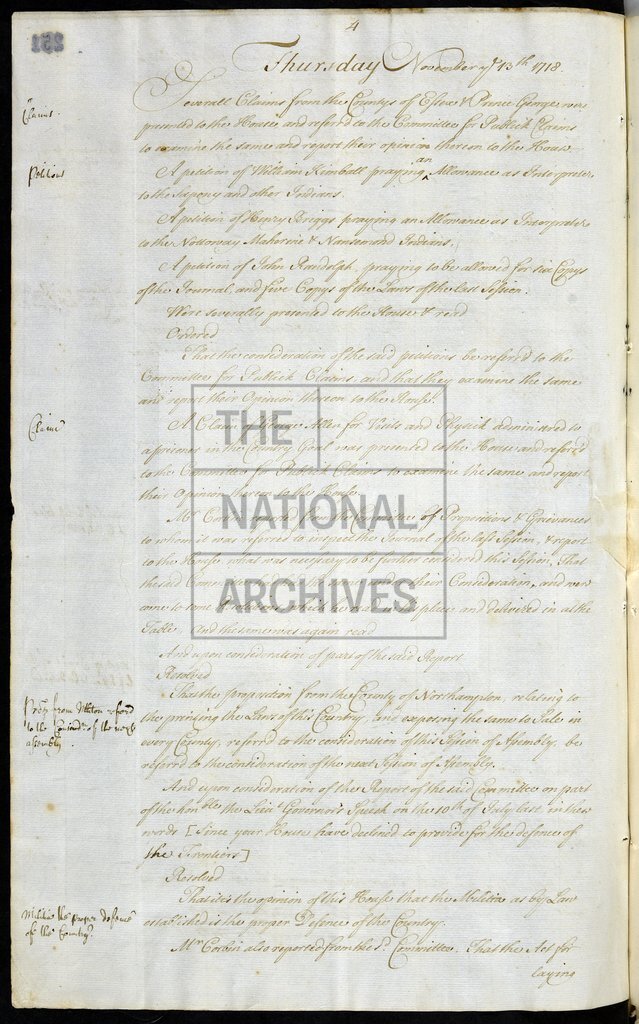 4
251
Thursday November ye 13th 1718.
Claims.
Severall Claims from the Countys of Essex & Prince George were
presented to the House and referr'd to the Committee for Publick Claims
to examine the same and report their opinion thereon to the House
Petitions
A petition of William Kimball praying an Allowance as Interpreter
to the Sapony and other Indians.
A petition of Henry Briggs praying an Allowance as Interpreter
to the Nottoway Maherine & Nansemond Indians,
A petition of John Randolph, praying to be allowed for six Copys
of the Journal, and five Copys of the Laws of the last Session.
Were severally presented to the House & read
Ordered
That the consideration of the said petitions be referr'd to the
Committee for Publick Claims, and that they examine the same
and report their Opinion thereon to the House.
Claim
A Claim of Allen for Visits and Physick administred to
a prisoner in the Country Goal was presented to the House and referr'd
to the Committee for Publick Claims to examine the same, and report
their Opinion thereon to the House
Mr Corbin Committee of Propositions & Grievances
to whom it was referred to inspect the Journal of the last Session, & report
to the House what was necessary to be further considered this Session, That
the said their Consideration, and were
come to some which he read in his place and delivered in at the
Table, and the same was again read
And upon consideration of part of the said Report
Resolved
Prop: from Nthton referd
to the Considn of the next
assembly.
That the proposition from the County of Northampton, relating to
the printing the Laws of this Country, and exposing the same to Sale in
every County, referr'd to the consideration of this Session of Assembly, be
referr'd to the consideration of the next Session of Assembly.
And upon consideration of the Report of the said Committee on part
of the honble the Lieut Governor's Speech on the 10th of July last in these
words [Since your House have declined to provide for the defence of
the Frontiers]
Resolved
Militia the proper defence
of the Country.
That it is the opinion of this House that the Militia as by Law
established is the proper Defence of the Country.
Mr Corbin also reported from the sd. Committee. That the Act for
laying
THE
NATIONAL
ARCHIVES